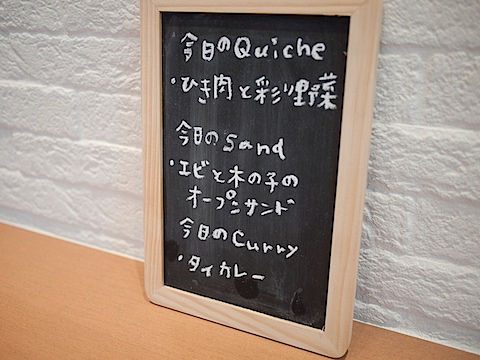 今日のQuiche
・ひき肉と彩り野菜
今日のSand
・エビと木の子の
オープンサンド
今日のCurry
・タイカレー